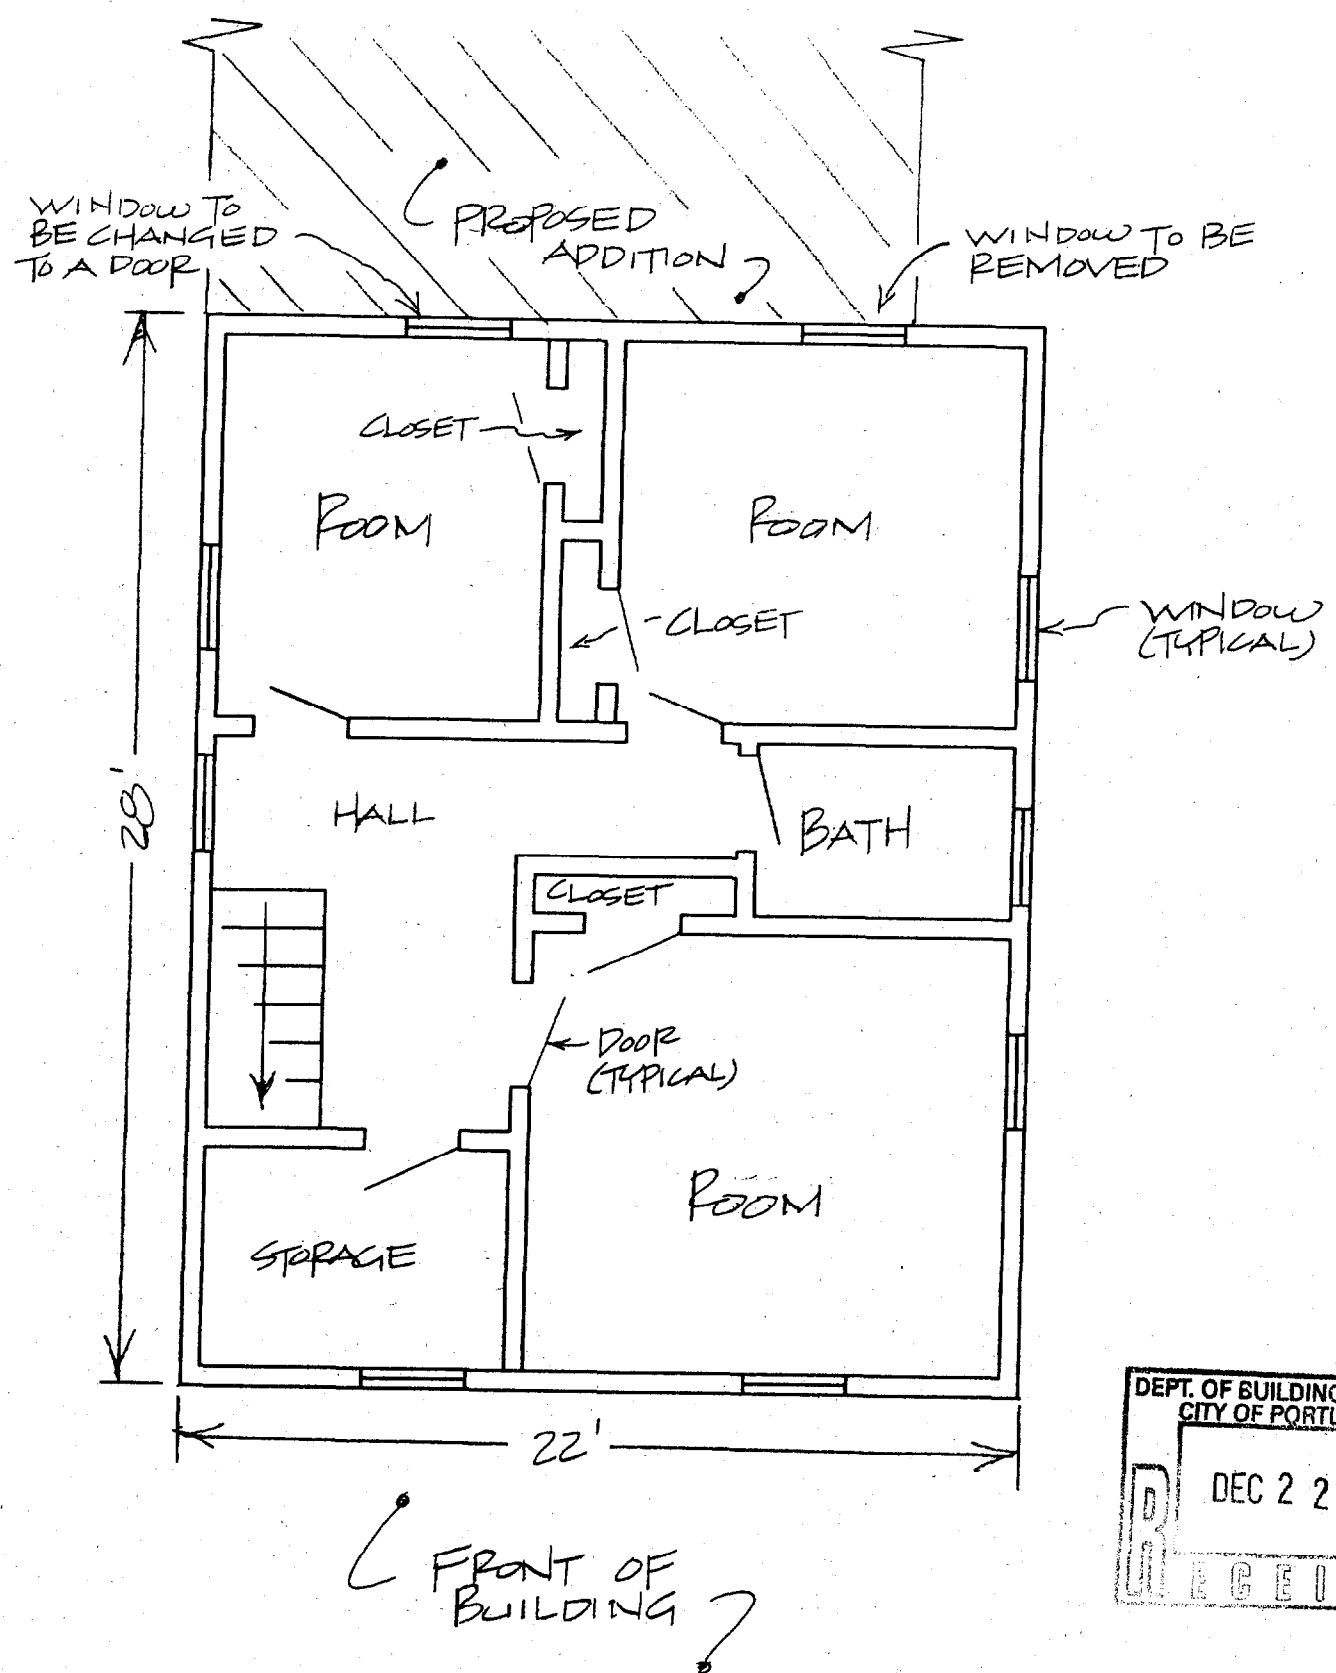 WINDOW TO
BE CHANGED
TO A DOOR
PROPOSED
ADDITION
WINDOW TO BE
REMOVED
CLOSET
ROOM
ROOM
CLOSET
WINDOW
(TYPICAL)
28'
HALL
BATH
CLOSET
DOOR
(TYPICAL)
ROOM
STORAGE
22'
FRONT OF
BUILDING
DEPT. OF BUILDING
CITY OF PORTL
DEC 2 2
RECEI